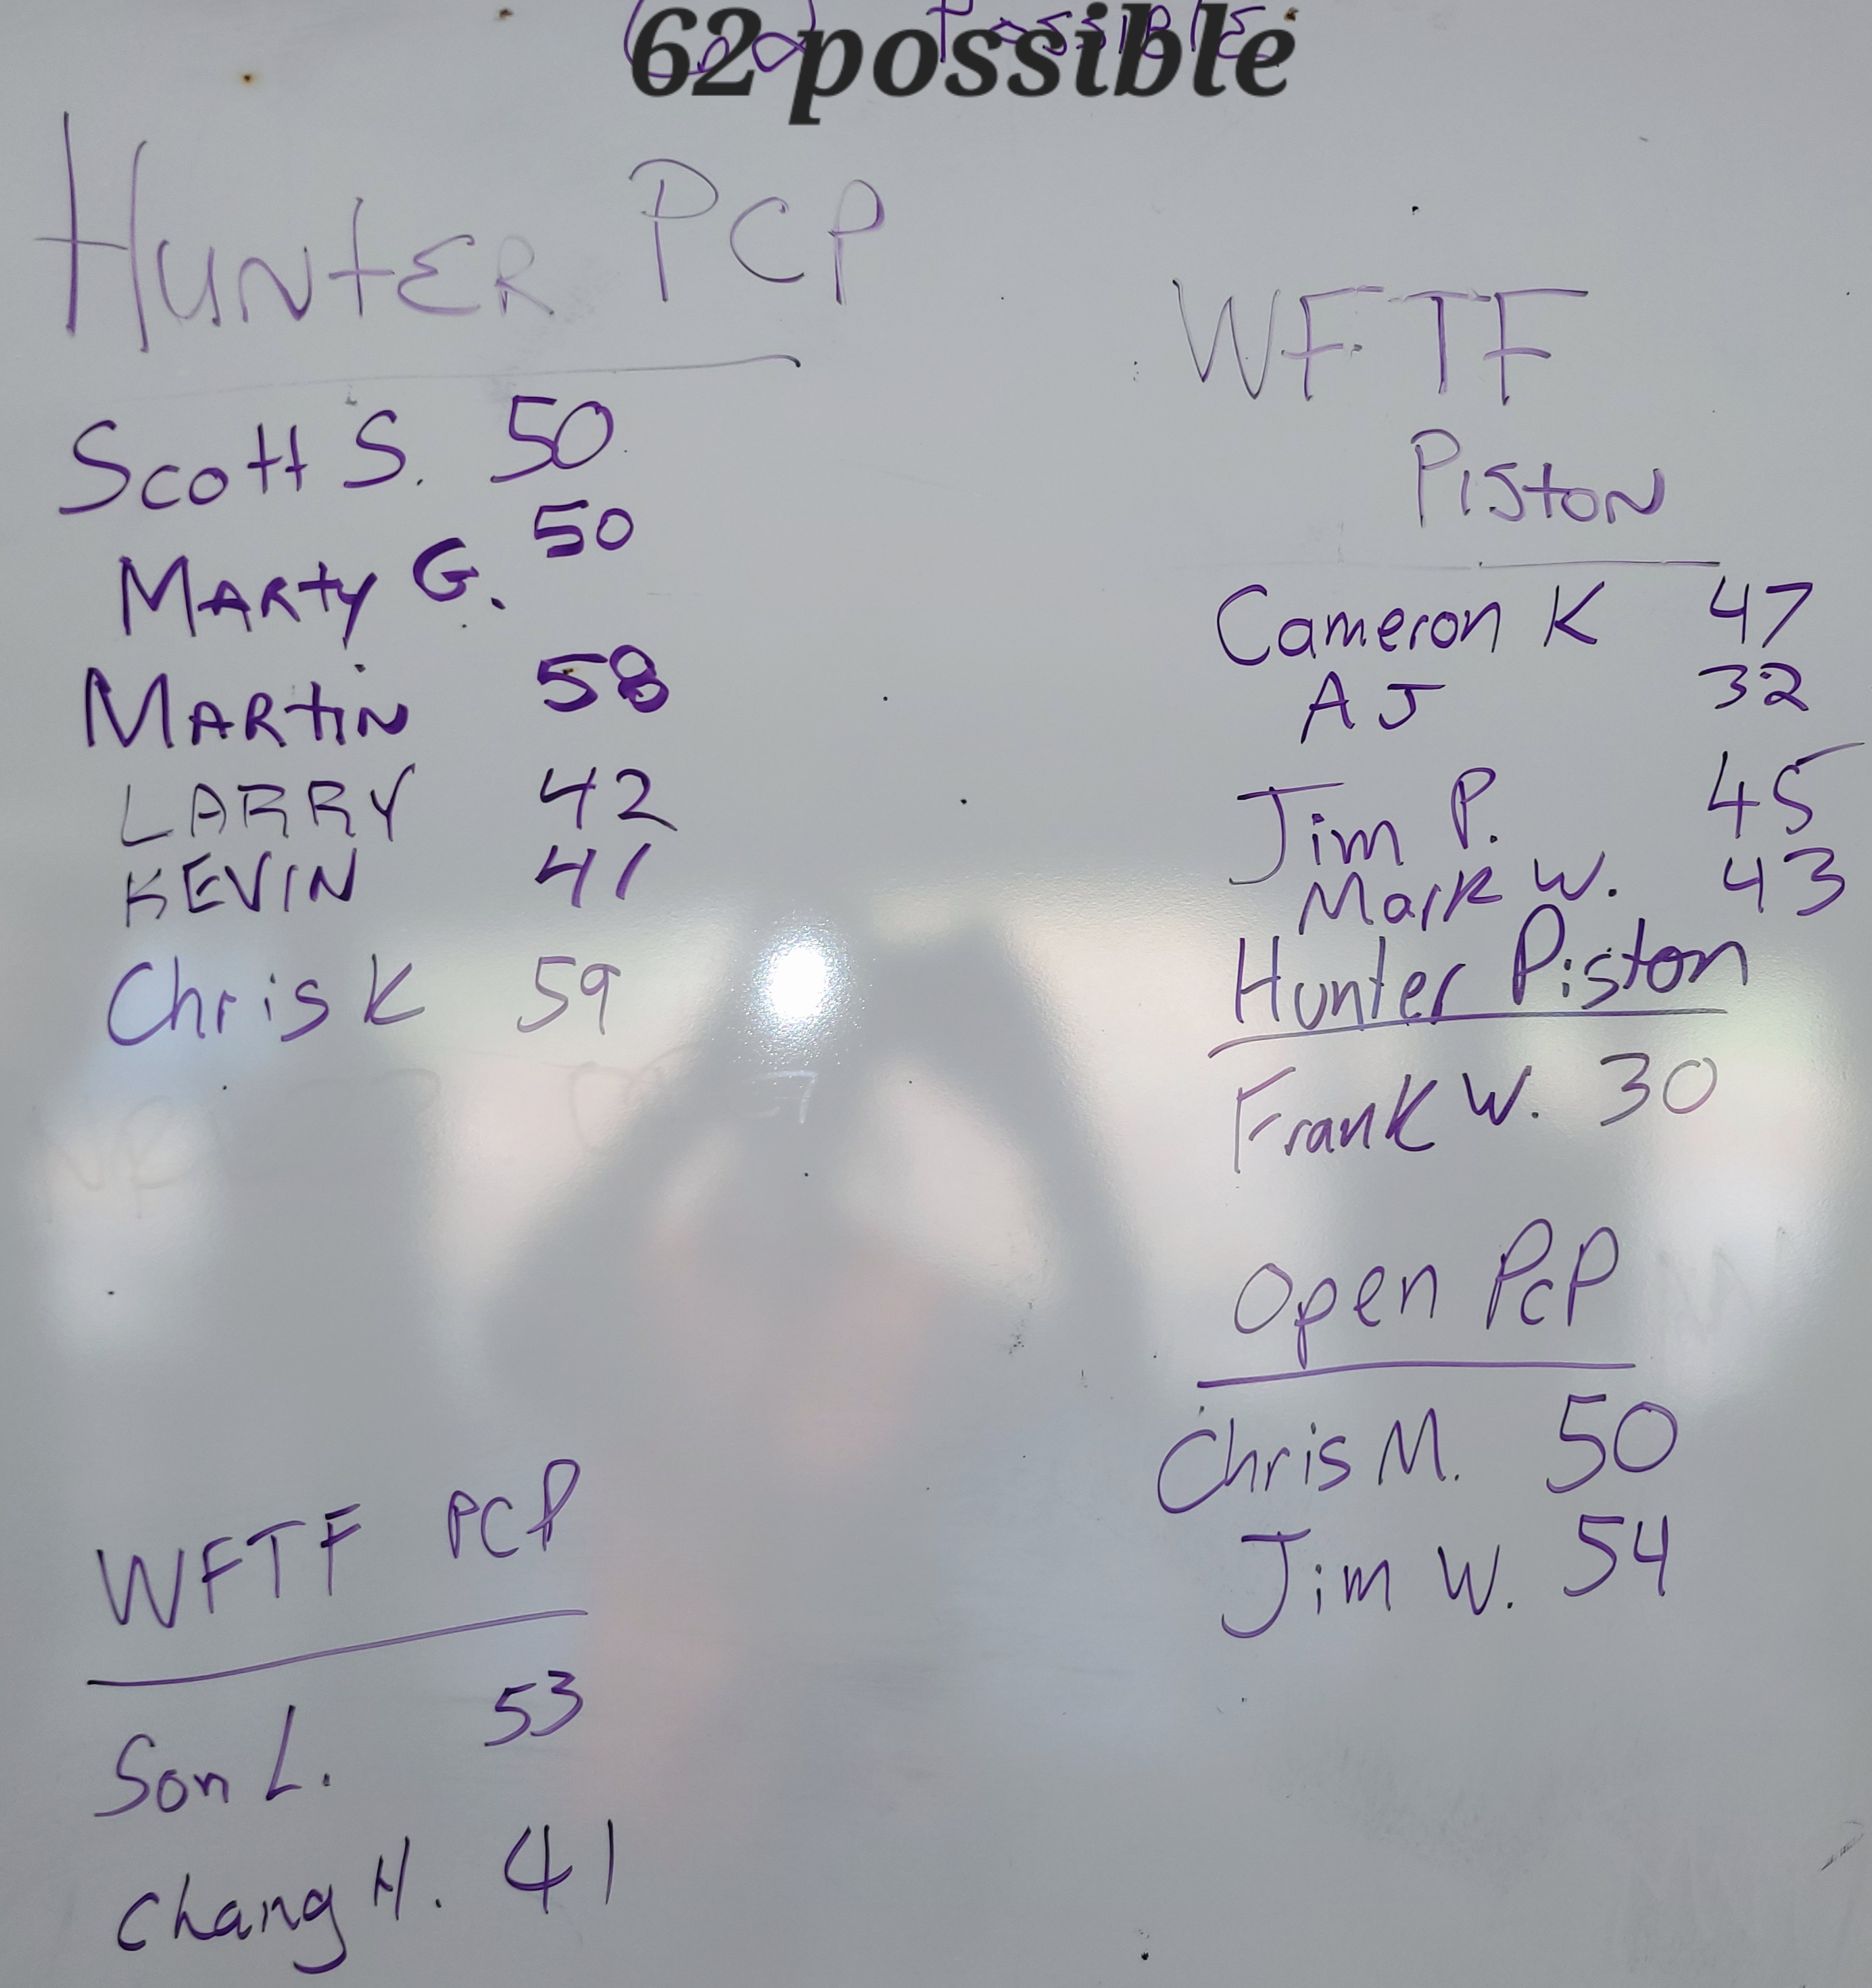 62 possible
HUNTER PCP
Scott S. 50
MARTY G. 50
MARTIN 58
LARRY 42
KEVIN 41
Chris K 59
WFTF PCP
Son L. 53
Chang H. 41
WFTF
PISTON
Cameron K 47
AJ 32
Jim P. 45
Mark W. 43
Hunter Piston
Frank W. 30
Open PCP
Chris M. 50
Jim W. 54